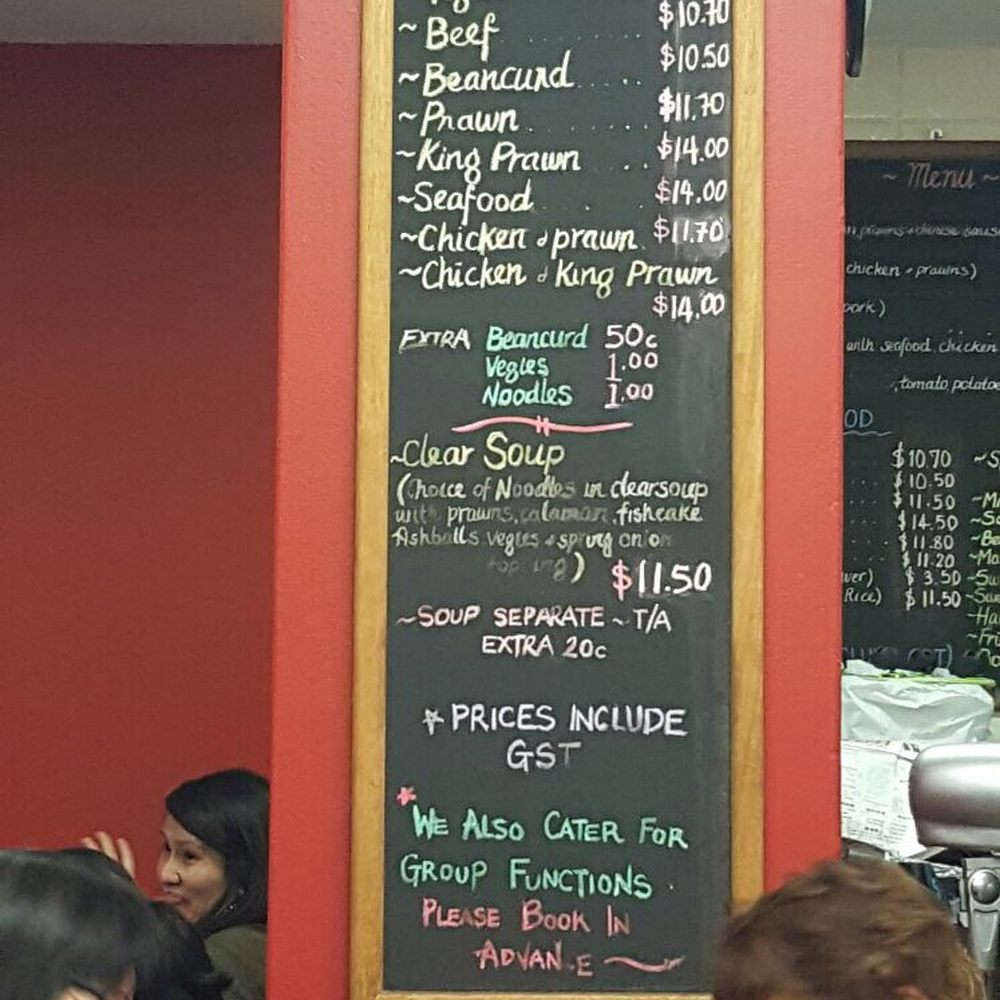 $10.70
~ Beef ........ $10.50
~ Beancurd .... $11.70
~ Prawn ........ $14.00
~ King Prawn ... $14.00
~ Seafood .... $11.70
~ Chicken & prawn
~ Chicken & King Prawn
$14.00
EXTRA Beancurd 50c
Vegies 1.00
Noodles 1.00
~ Clear Soup
(Choice of Noodles in clearsoup
with prawns, calamari, fishcake
fishballs vegies & spring onion
topping) $11.50
~ SOUP SEPARATE ~ T/A
EXTRA 20c
* PRICES INCLUDE
GST
* WE ALSO CATER FOR
GROUP FUNCTIONS.
PLEASE BOOK IN
ADVAN E ~
~ Menu ~
prawns & chinese
chicken & prawns)
pork)
with seafood, chicken
, tomato, potatoe
OD
$10.70
$10.50
$11.50
$14.50
$11.80
$11.20
$3.50
Rice) $11.50